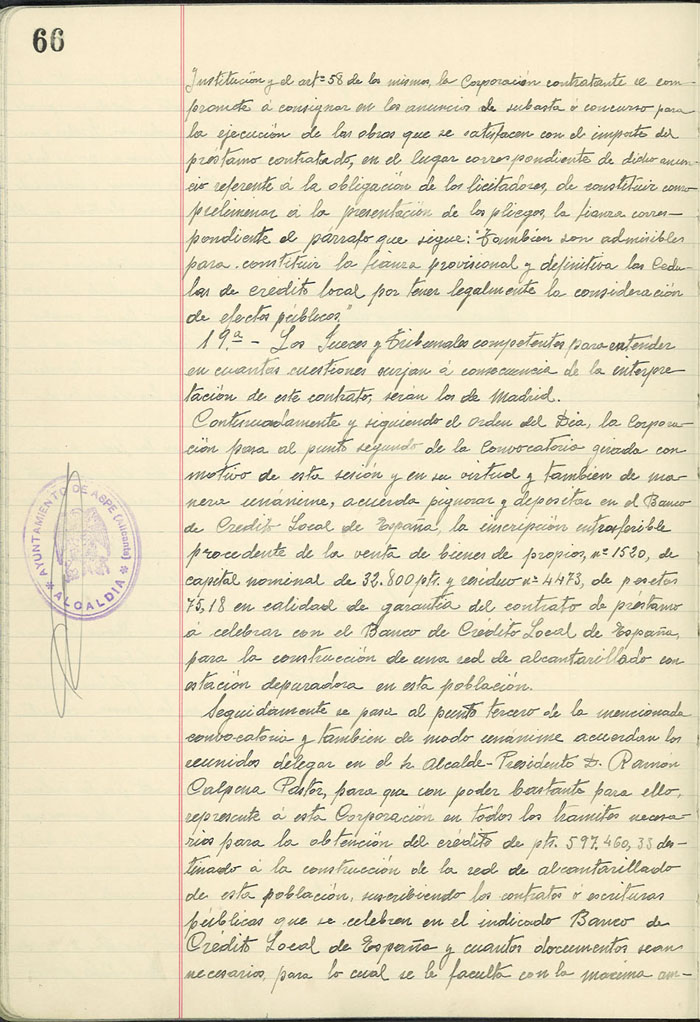 66
Institución y el artº 58 de los mismos, la Corporación contratante se com-
promete á consignar en los anuncios de subasta ó concurso para
la ejecución de las obras que se satisfacen con el importe del
préstamo contratado, en el lugar correspondiente de dicho anun-
cio referente á la obligación de los licitadores, de constituir como
preliminar á la presentación de los pliegos, la fianza corres-
pondiente el párrafo que sigue: "También son admisibles
para constituir la fianza provisional y definitiva las Cédu-
las de crédito local por tener legalmente la consideración
de efectos públicos."
19ª - Los Jueces y Tribunales competentes para entender
en cuantas cuestiones surjan á consecuencia de la interpre-
tación de este contrato, serán los de Madrid.
Continuadamente y siguiendo el Orden del Dia, la Corpora-
ción pasa al punto segundo de la Convocatoria girada con
motivo de esta sesión y en su virtud y tambien de ma-
nera unánime, acuerda pignorar y depositar en el Banco
de Credito Local de España, la inscripción intrasferible
procedente de la venta de bienes de propios, nº 1520, de
capital nominal de 32.800 pts. y residuo nº 4473, de pesetas
75,18 en calidad de garantía del contrato de préstamo
á celebrar con el Banco de Crédito Local de España,
para la construcción de una red de alcantarillado con
estación depuradora en esta población.
Seguidamente se pasa al punto tercero de la mencionada
convocatoria y tambien de modo unánime acuerdan los
reunidos delegar en el Sr. Alcalde-Presidente D. Ramon
Calpena Pastor, para que con poder bastante para ello,
represente á esta Corporación en todos los trámites necesa-
rios para la obtención del crédito de pts. 597.460,33 des-
tinado á la construcción de la red de alcantarillado
de esta población, suscribiendo los contratos ó escrituras
públicas que se celebren en el indicado Banco de
Crédito Local de España y cuantos documentos sean
necesarios, para lo cual se le faculta con la maxima am-
AYUNTAMIENTO DE ASPE (Alicante)
* ALCALDIA *